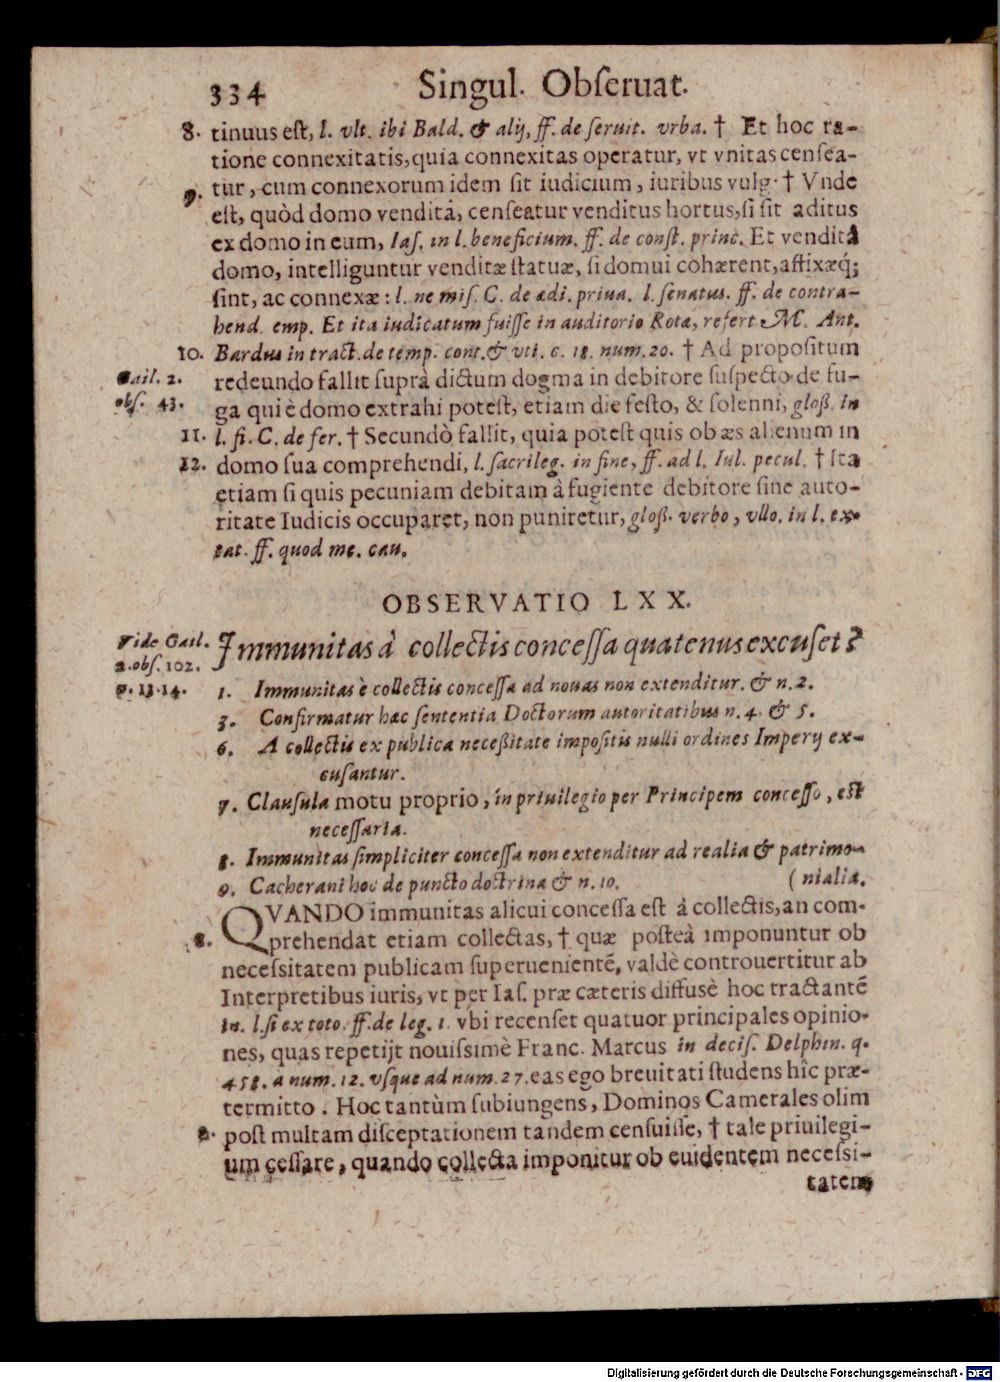 334 Singul. Obſeruat.
8. tinuus eſt, l. vlt. ibi Bald. & alij, ff. de ſeruit. vrba. † Et hoc ra-
tione connexitatis, quia connexitas operatur, vt vnitas cenſea-
9. tur, cum connexorum idem ſit iudicium, iuribus vulg. † Vnde
eſt, quòd domo venditâ, cenſeatur venditus hortus, ſi ſit aditus
ex domo in eum, Iaſ. in l. beneficium. ff. de conſt. princ. Et venditâ
domo, intelliguntur venditæ ſtatuæ, ſi domui cohærent, affixæq́;
ſint, ac connexæ: l. ne miſ. C. de ædi. priua. l. ſenatus. ff. de contra-
hend. emp. Et ita iudicatum fuiſſe in auditorio Rotæ, refert M. Ant.
10. Bardus in tract. de temp. cont. & vti. c. 18. num. 20. † Ad propoſitum
Gail. 2. redeundo fallit ſuprà dictum dogma in debitore ſuſpecto de fu-
obſ. 43. ga qui è domo extrahi poteſt, etiam die feſto, & ſolenni, gloß. in
11. l. fi. C. de fer. † Secundò fallit, quia poteſt quis ob æs alienum in
12. domo ſua comprehendi, l. ſacrileg. in fine, ff. ad l. Iul. pecul. † Ita
etiam ſi quis pecuniam debitam à fugiente debitore ſine auto-
ritate Iudicis occuparet, non puniretur, gloß. verbo, vllo. in l. ex-
tat. ff. quod me. cau.
OBSERVATIO LXX.
Vide Gail. Immunitas à collectis conceſſa quatenus excuſet?
2. obſ. 102.
n. 13. 14. 1. Immunitas è collectis conceſſa ad nouas non extenditur. & n. 2.
3. Confirmatur hæc ſententia Doctorum autoritatibus n. 4. & 5.
6. A collectis ex publica neceßitate impoſitis nulli ordines Imperij ex-
cuſantur.
7. Clauſula motu proprio, in priuilegio per Principem conceſſo, eſt
neceſſaria.
8. Immunitas ſimpliciter conceſſa non extenditur ad realia & patrimo-
9. Cacherani hoc de puncto doctrina & n. 10. (nialia.
QVANDO immunitas alicui conceſſa eſt à collectis, an com-
prehendat etiam collectas, † quæ poſteà imponuntur ob
neceſsitatem publicam ſuperuenientẽ, valdè controuertitur ab
Interpretibus iuris, vt per Iaſ. præ cæteris diffusè hoc tractantẽ
in. l. ſi ex toto. ff. de leg. 1. vbi recenſet quatuor principales opinio-
nes, quas repetijt nouiſsimè Franc. Marcus in deciſ. Delphin. q.
458. a num. 12. vſque ad num. 27. eas ego breuitati ſtudens hîc præ-
termitto. Hoc tantùm ſubiungens, Dominos Camerales olim
2. poſt multam diſceptationem tandem cenſuiſſe, † tale priuilegi-
um ceſſare, quando collecta imponitur ob euidentem neceſsi-
tatem
Digitalisierung gefördert durch die Deutsche Forschungsgemeinschaft - DFG